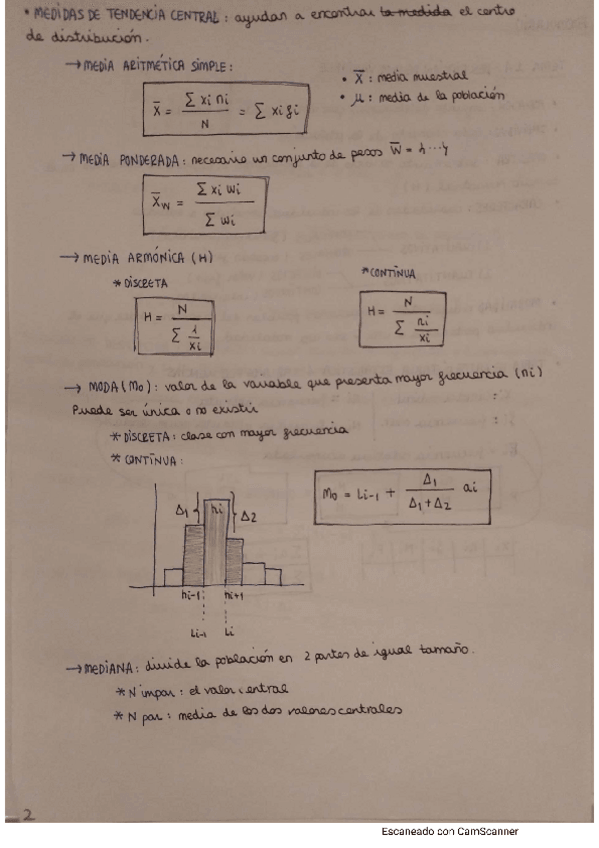 • MEDIDAS DE TENDENCIA CENTRAL: ayudan a encontrar la medida el centro
de distribución.
→ MEDIA ARITMÉTICA SIMPLE:
X̄ = Σ xi ni / N = Σ xi fi
• X̄ : media muestral
• μ : media de la población
→ MEDIA PONDERADA: necesario un conjunto de pesos W̄ =
X̄w = Σ xi wi / Σ wi
→ MEDIA ARMÓNICA (H)
* DISCRETA
* CONTÍNUA
H = N / Σ 1/xi
H = N / Σ ni/xi
→ MODA (Mo): valor de la variable que presenta mayor frecuencia (ni)
Puede ser única o no existir
* DISCRETA: clase con mayor frecuencia
* CONTÍNUA:
Mo = Li-1 + Δ1 / Δ1+Δ2 ai
Δ1 hi Δ2
hi-1 hi+1
Li-1 Li
→ MEDIANA: divide la población en 2 partes de igual tamaño.
* N impar: el valor central
* N par: media de los dos valores centrales
2
Escaneado con CamScanner